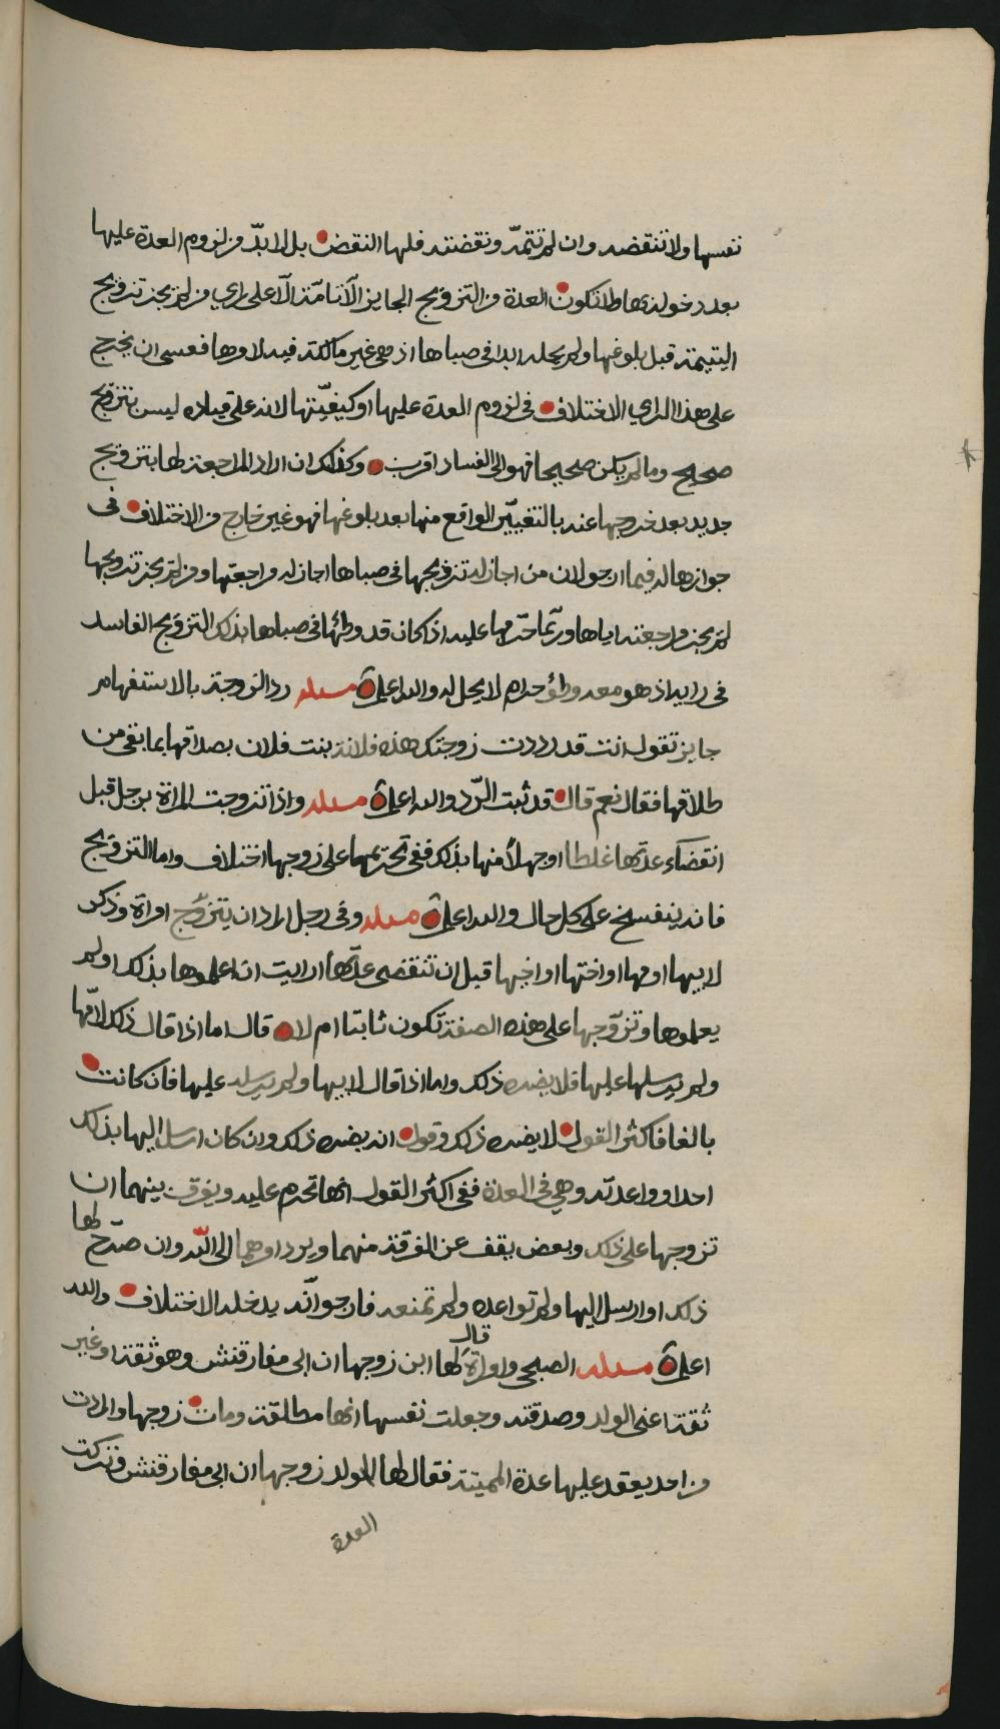 نفسها ولا تنقضه وان لم تتمّه ونقضته فلها النقض بل لا بدّ من لزوم العدة عليها
بعد دخوله بها ولا تكون العدة من التزويج الجايز الا تامّة الّا على راي من لم يجز تزويج
اليتيمة قبل بلوغها ولم يحله ابدا في صباها اذ هي غير مالكة فيه لامرها فعسى ان يخرج
على هذا الراي الاختلاف في لزوم العدة عليها او كيفيّتها لانه على قياده ليس بتزويج
صحيح وما لم يكن صحيحا فهو الى الفساد اقرب وكذلك ان اراد المراجعة لها بتزويج
جديد بعد خروجها عنه بالتغيير الواقع منها بعد بلوغها فهو غير خارج من الاختلاف في
جوازها له فيما ارجو لان من اجاز له تزويجها في صباها اجاز له مراجعتها ومن لم يجز تزويجها
لم يجز مراجعته اياها وربّما حرّمها عليه اذا كان قد وطئها في صباها بذلك التزويج الفاسد
في رايه اذ هو معه وطؤ حرام لا يحل له والله اعلم مسئلة رد الزوجة بالاستفهام
جايز تقول انت قد رددت زوجتك هذه فلانة بنت فلان بصداقها بما بقي من
طلاقها فقال نعم قال قد ثبت الرّد والله اعلم مسئلة واذا تزوجت المراة برجل قبل
انقضاء عدتها غلطا او جهلا منها بذلك ففي تحريمها على زوجها اختلاف واما التزويج
فانه ينفسخ على كل حال والله اعلم مسئلة وفي رجل اراد ان يتزوّج امراة وذكر
لابيها او امها او اختها او اخيها قبل ان تنقضي عدّتها ارايت ان اعلموها بذلك او لم
يعلموها وتزوّجها على هذه الصفة تكون ثابتا ام لا قال اما اذا قال ذلك لامّها
ولم يرسلها عليها فلا يضره ذلك واما اذا قال لابيها ولم يرسله عليها فان كانت
بالغا فاكثر القول لا يضره ذلك وقول انه يضره ذلك وان كان ارسل اليها بذلك
احدا وواعدته وهي في العدة ففي اكثر القول انها تحرم عليه ويفرق بينهما ان
تزوجها على ذلك وبعض يقف عن الفرقة منهما ويرد امرهما الى الله وان صرّح لها
ذلك او ارسل اليها ولم تواعده ولم تمنعه فارجو انّه يدخله الاختلاف والله
اعلم مسئلة الصبحي وامراة قال لها ابن زوجها ان ابي مفارقنش وهو ثقة او غير
ثقة اعني الولد وصدقته وجعلت نفسها انها مطلقة ومات زوجها وارادت
من احد يعقد عليها عدة المميتة فقال لها الولد زوجها ان ابي مفارقنش فتركت
العدة